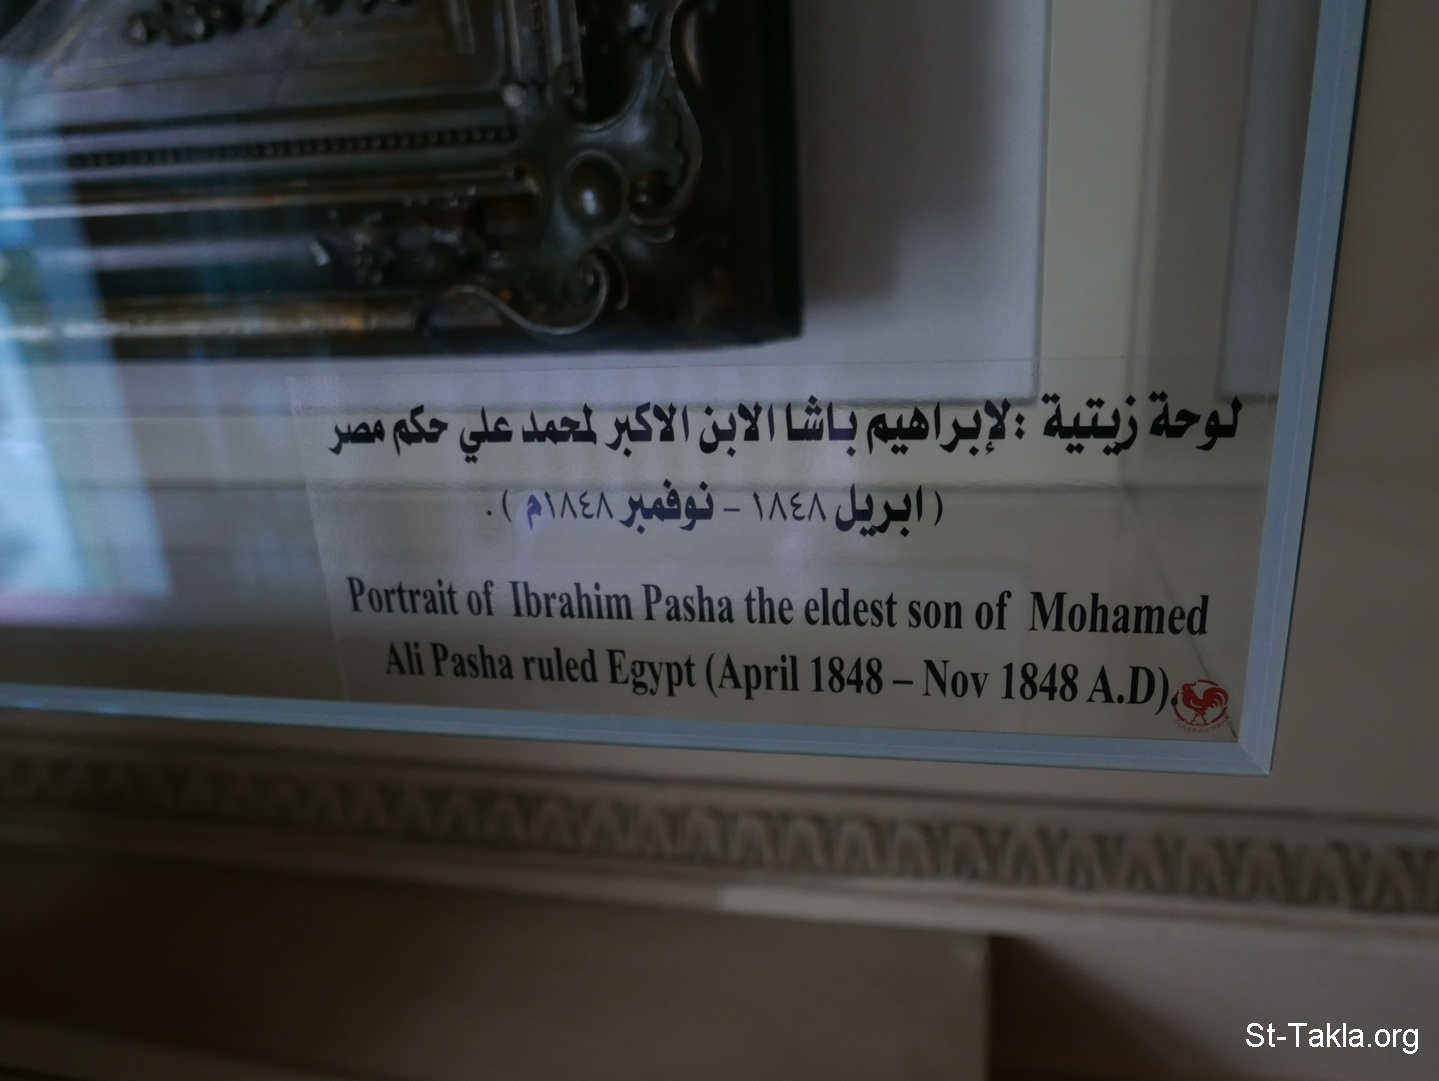 لوحة زيتية :لإبراهيم باشا الابن الاكبر لمحمد علي حكم مصر
( ابريل ١٨٤٨ – نوفمبر ١٨٤٨م ) .
Portrait of Ibrahim Pasha the eldest son of Mohamed
Ali Pasha ruled Egypt (April 1848 – Nov 1848 A.D).
St-Takla.org